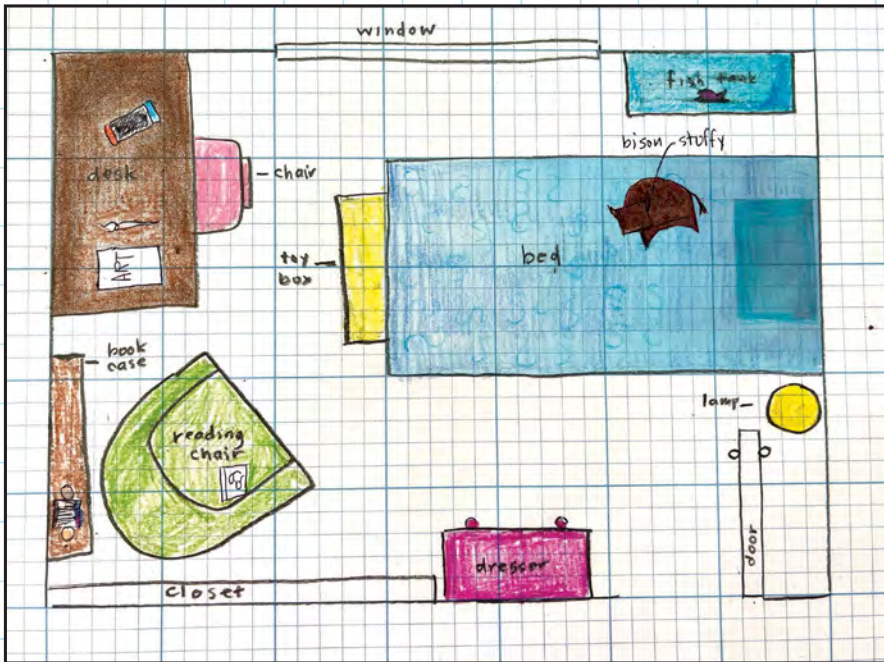 window
fish tank
bison stuffy
desk
chair
toy
box
bed
ART
book
case
lamp
reading
chair
door
dresser
closet